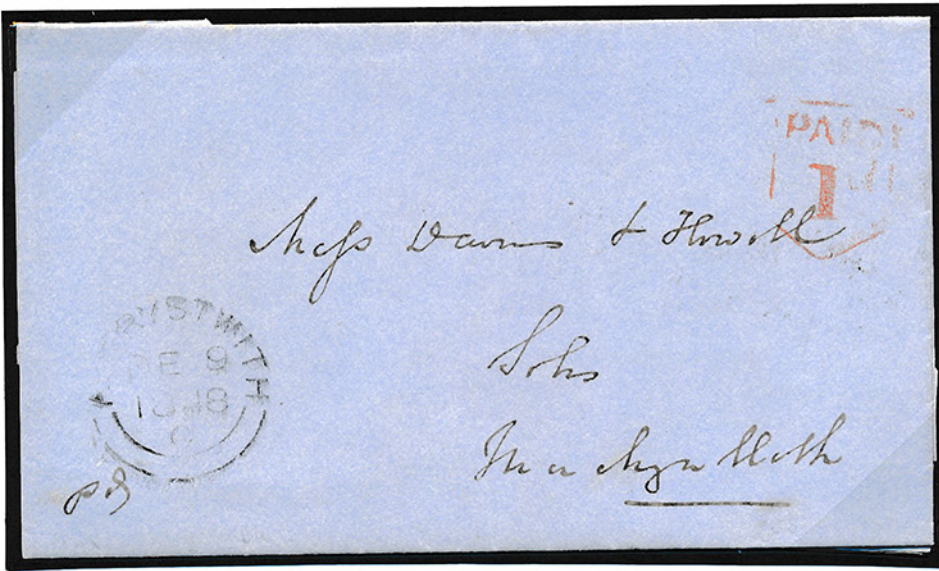 PAID
1
Mess Davies & Howell
Sols
Machynlleth
RYSTWITH
DE 9
1848
pd